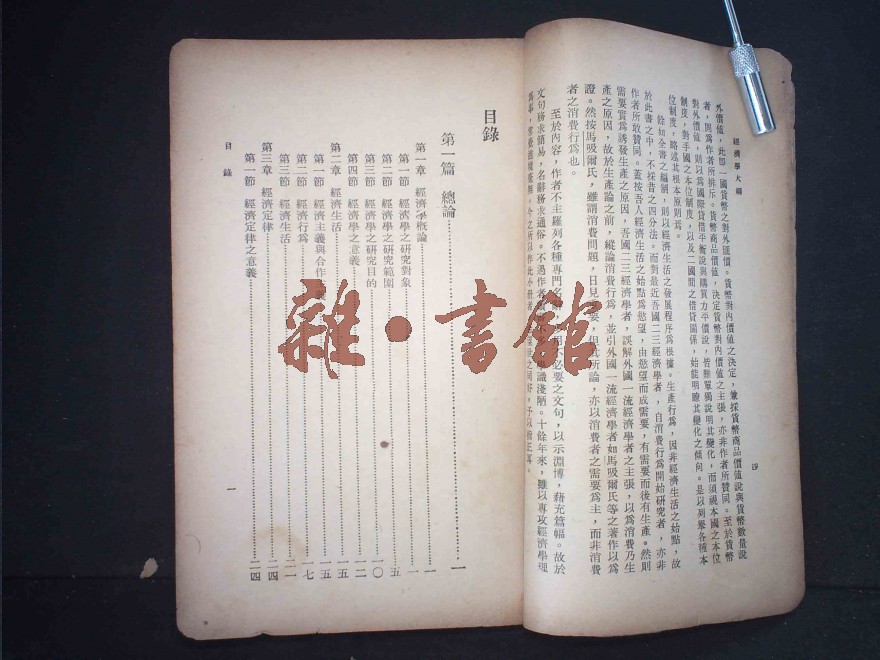 經濟學大綱
四
外價值，此即一國貨幣之對外匯價。貨幣對內價值之決定，兼採貨幣商品價值說與貨幣數量說
者，則為作者所排斥。貨幣商品價值，決定貨幣對內價值之主張，亦非作者所贊同。至於貨幣
對外價值，則以為國際貸借平衡說與購買力平價說，皆難單獨說明其變化，而須視本國之本位
制度，對手國之本位制度，以及二國間之借貸關係，始能明瞭其變化之傾向。是以列舉各種本
位制度，略述其根本原則焉。
餘如全書之編制，則以經濟生活之發展程序為根據。生產行為，因非經濟生活之始點，故
於此書之中，不採昔之四分法。而對最近吾國二三經濟學者，自消費行為開始研究者，亦非
作者所敢贊同。蓋按吾人經濟生活之始點為慾望，由慾望而成需要，有需要而後有生產。然則
需要實為誘發生產之原因，吾國二三經濟學者，誤解外國一流經濟學者之主張，以為消費乃生
產之原因，故於生產之前，縱論消費行為，並引外國一流經濟學者如馬吸爾氏等之著作以為
證。然按馬吸爾氏，雖謂消費問題，日見 要，但其所論，亦以消費者之需要為主，而非消費
者之消費行為也。
至於內容，作者不主羅列各種專門名 不必要之文句，以示淵博，藉充篇幅。故於
文句務求簡易，名辭務求通俗。不過作者 學識淺陋。十餘年來，雖以專攻經濟學理
目錄
第一篇 總論……一
第一章 經濟學概論……一
第一節 經濟學之研究對象……一
第二節 經濟學之研究範圍……五
第三節 經濟學之研究目的……一〇
第四節 經濟學之意義……一二
第二章 經濟生活……一五
第一節 經濟主義與合作……一五
第二節 經濟行為……一七
第三節 經濟生活……二一
第三章 經濟定律……二四
第一節 經濟定律之意義……二四
目錄
一
雜•書館